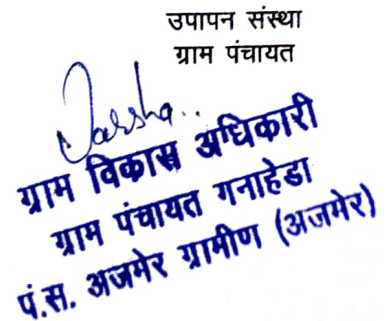 उपापन संस्था
ग्राम पंचायत
ग्राम विकास अधिकारी
ग्राम पंचायत गनाहेडा
पं.स. अजमेर ग्रामीण (अजमेर)